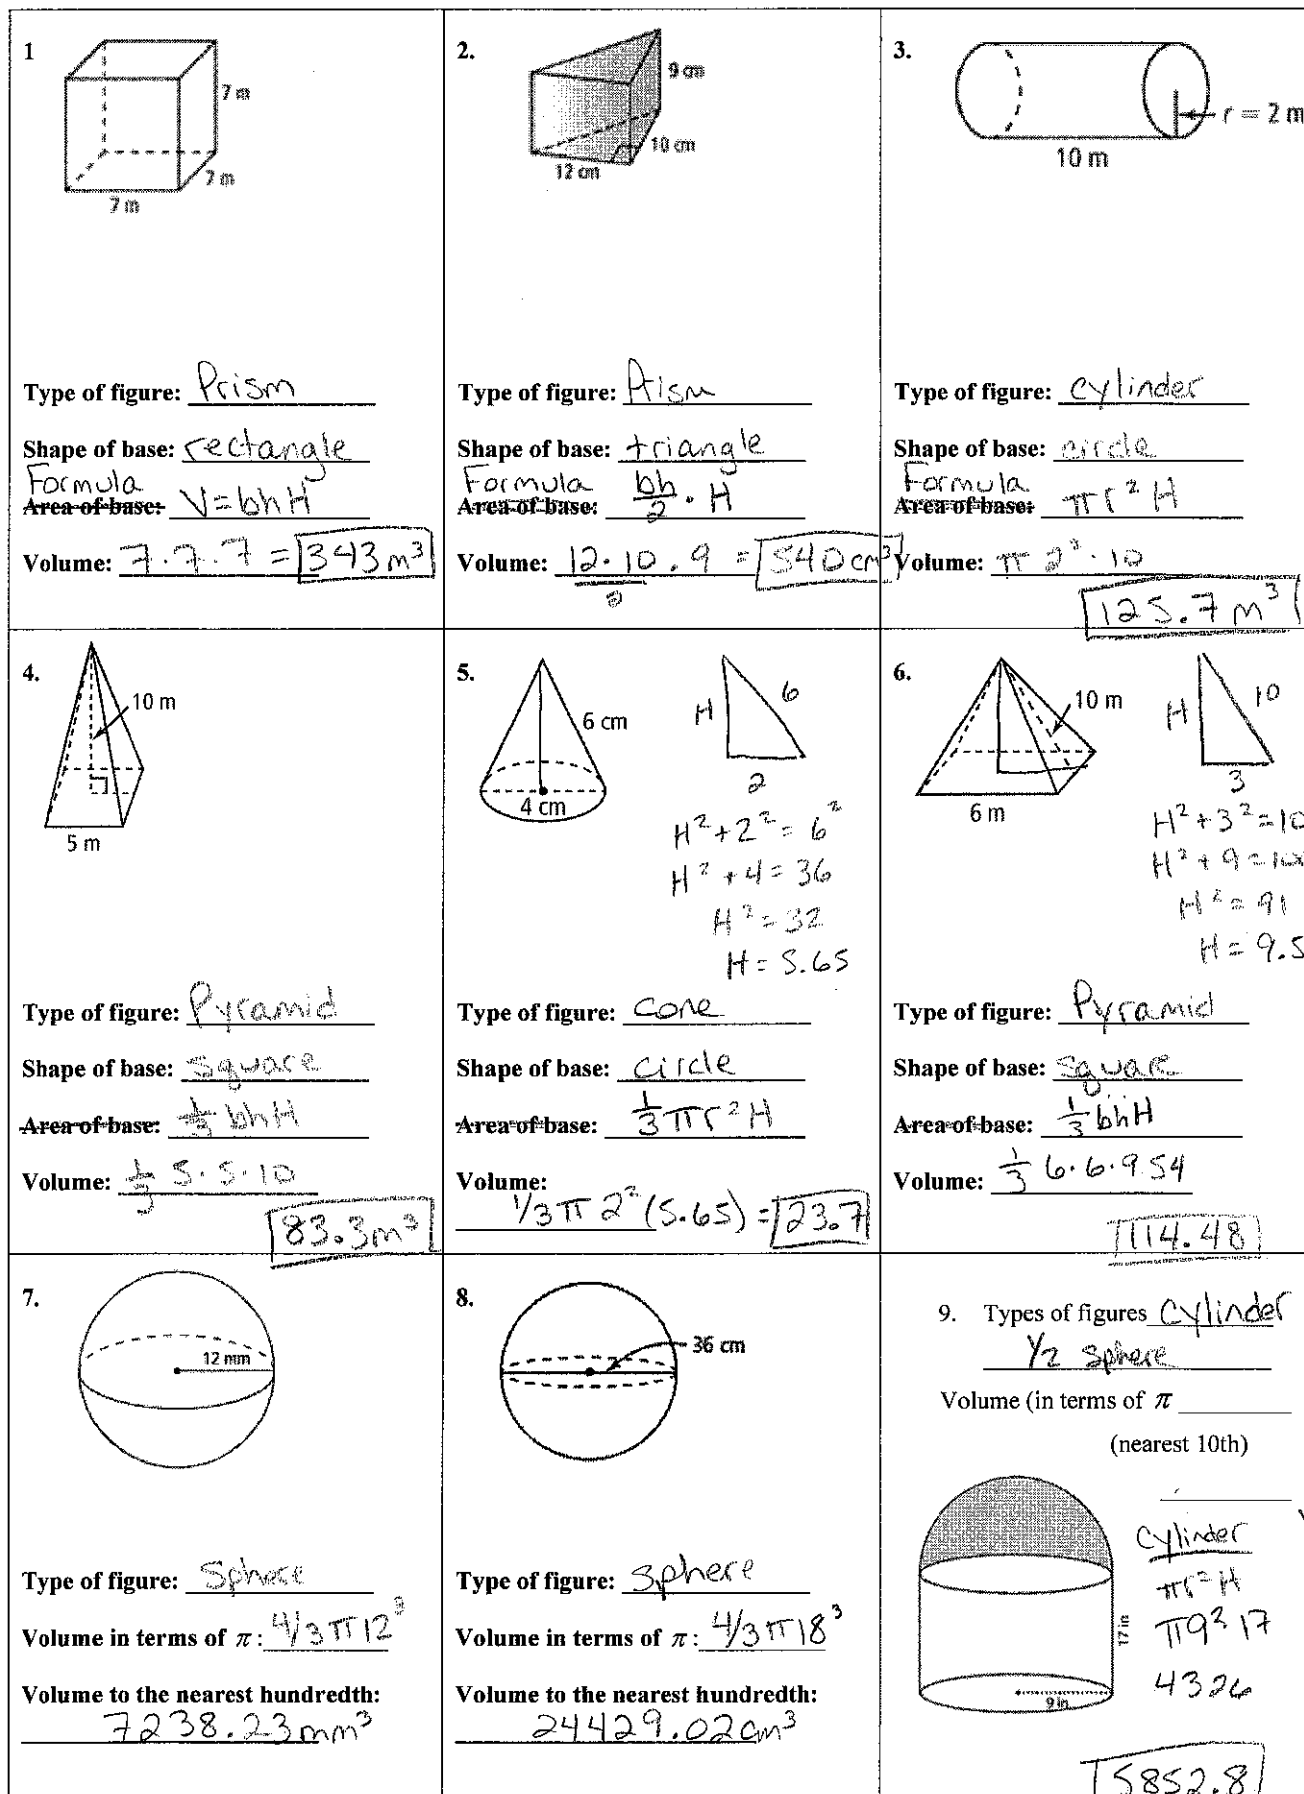 1
7 m
7 m
7 m
Type of figure: Prism
Shape of base: rectangle
Formula
Area of base: V=bhH
Volume: 7·7·7 = 343 m³
2.
9 cm
10 cm
12 cm
Type of figure: Prism
Shape of base: triangle
Formula
Area of base: bh/2 · H
Volume: 12·10/2 · 9 = 540 cm³
3.
r = 2 m
10 m
Type of figure: cylinder
Shape of base: circle
Formula
Area of base: πr²H
Volume: π 2² · 10
125.7 m³
4.
10 m
5 m
Type of figure: Pyramid
Shape of base: square
Area of base: 1/3 bhH
Volume: 1/3 5·5·10
83.3 m³
5.
6 cm
4 cm
H 6
2
H² + 2² = 6²
H² + 4 = 36
H² = 32
H = 5.65
Type of figure: cone
Shape of base: circle
Area of base: 1/3 πr²H
Volume:
1/3 π 2² (5.65) = 23.7
6.
10 m
6 m
H 10
3
H² + 3² = 10
H² + 9 = 100
H² = 91
H = 9.5
Type of figure: Pyramid
Shape of base: square
Area of base: 1/3 bhH
Volume: 1/3 6·6·9.54
114.48
7.
12 mm
Type of figure: Sphere
Volume in terms of π: 4/3 π 12³
Volume to the nearest hundredth:
7238.23 mm³
8.
36 cm
Type of figure: Sphere
Volume in terms of π: 4/3 π 18³
Volume to the nearest hundredth:
24429.02 cm³
9. Types of figures cylinder
1/2 sphere
Volume (in terms of π
(nearest 10th)
17 in
9 in
cylinder
πr²H
π9² 17
4326
5852.8